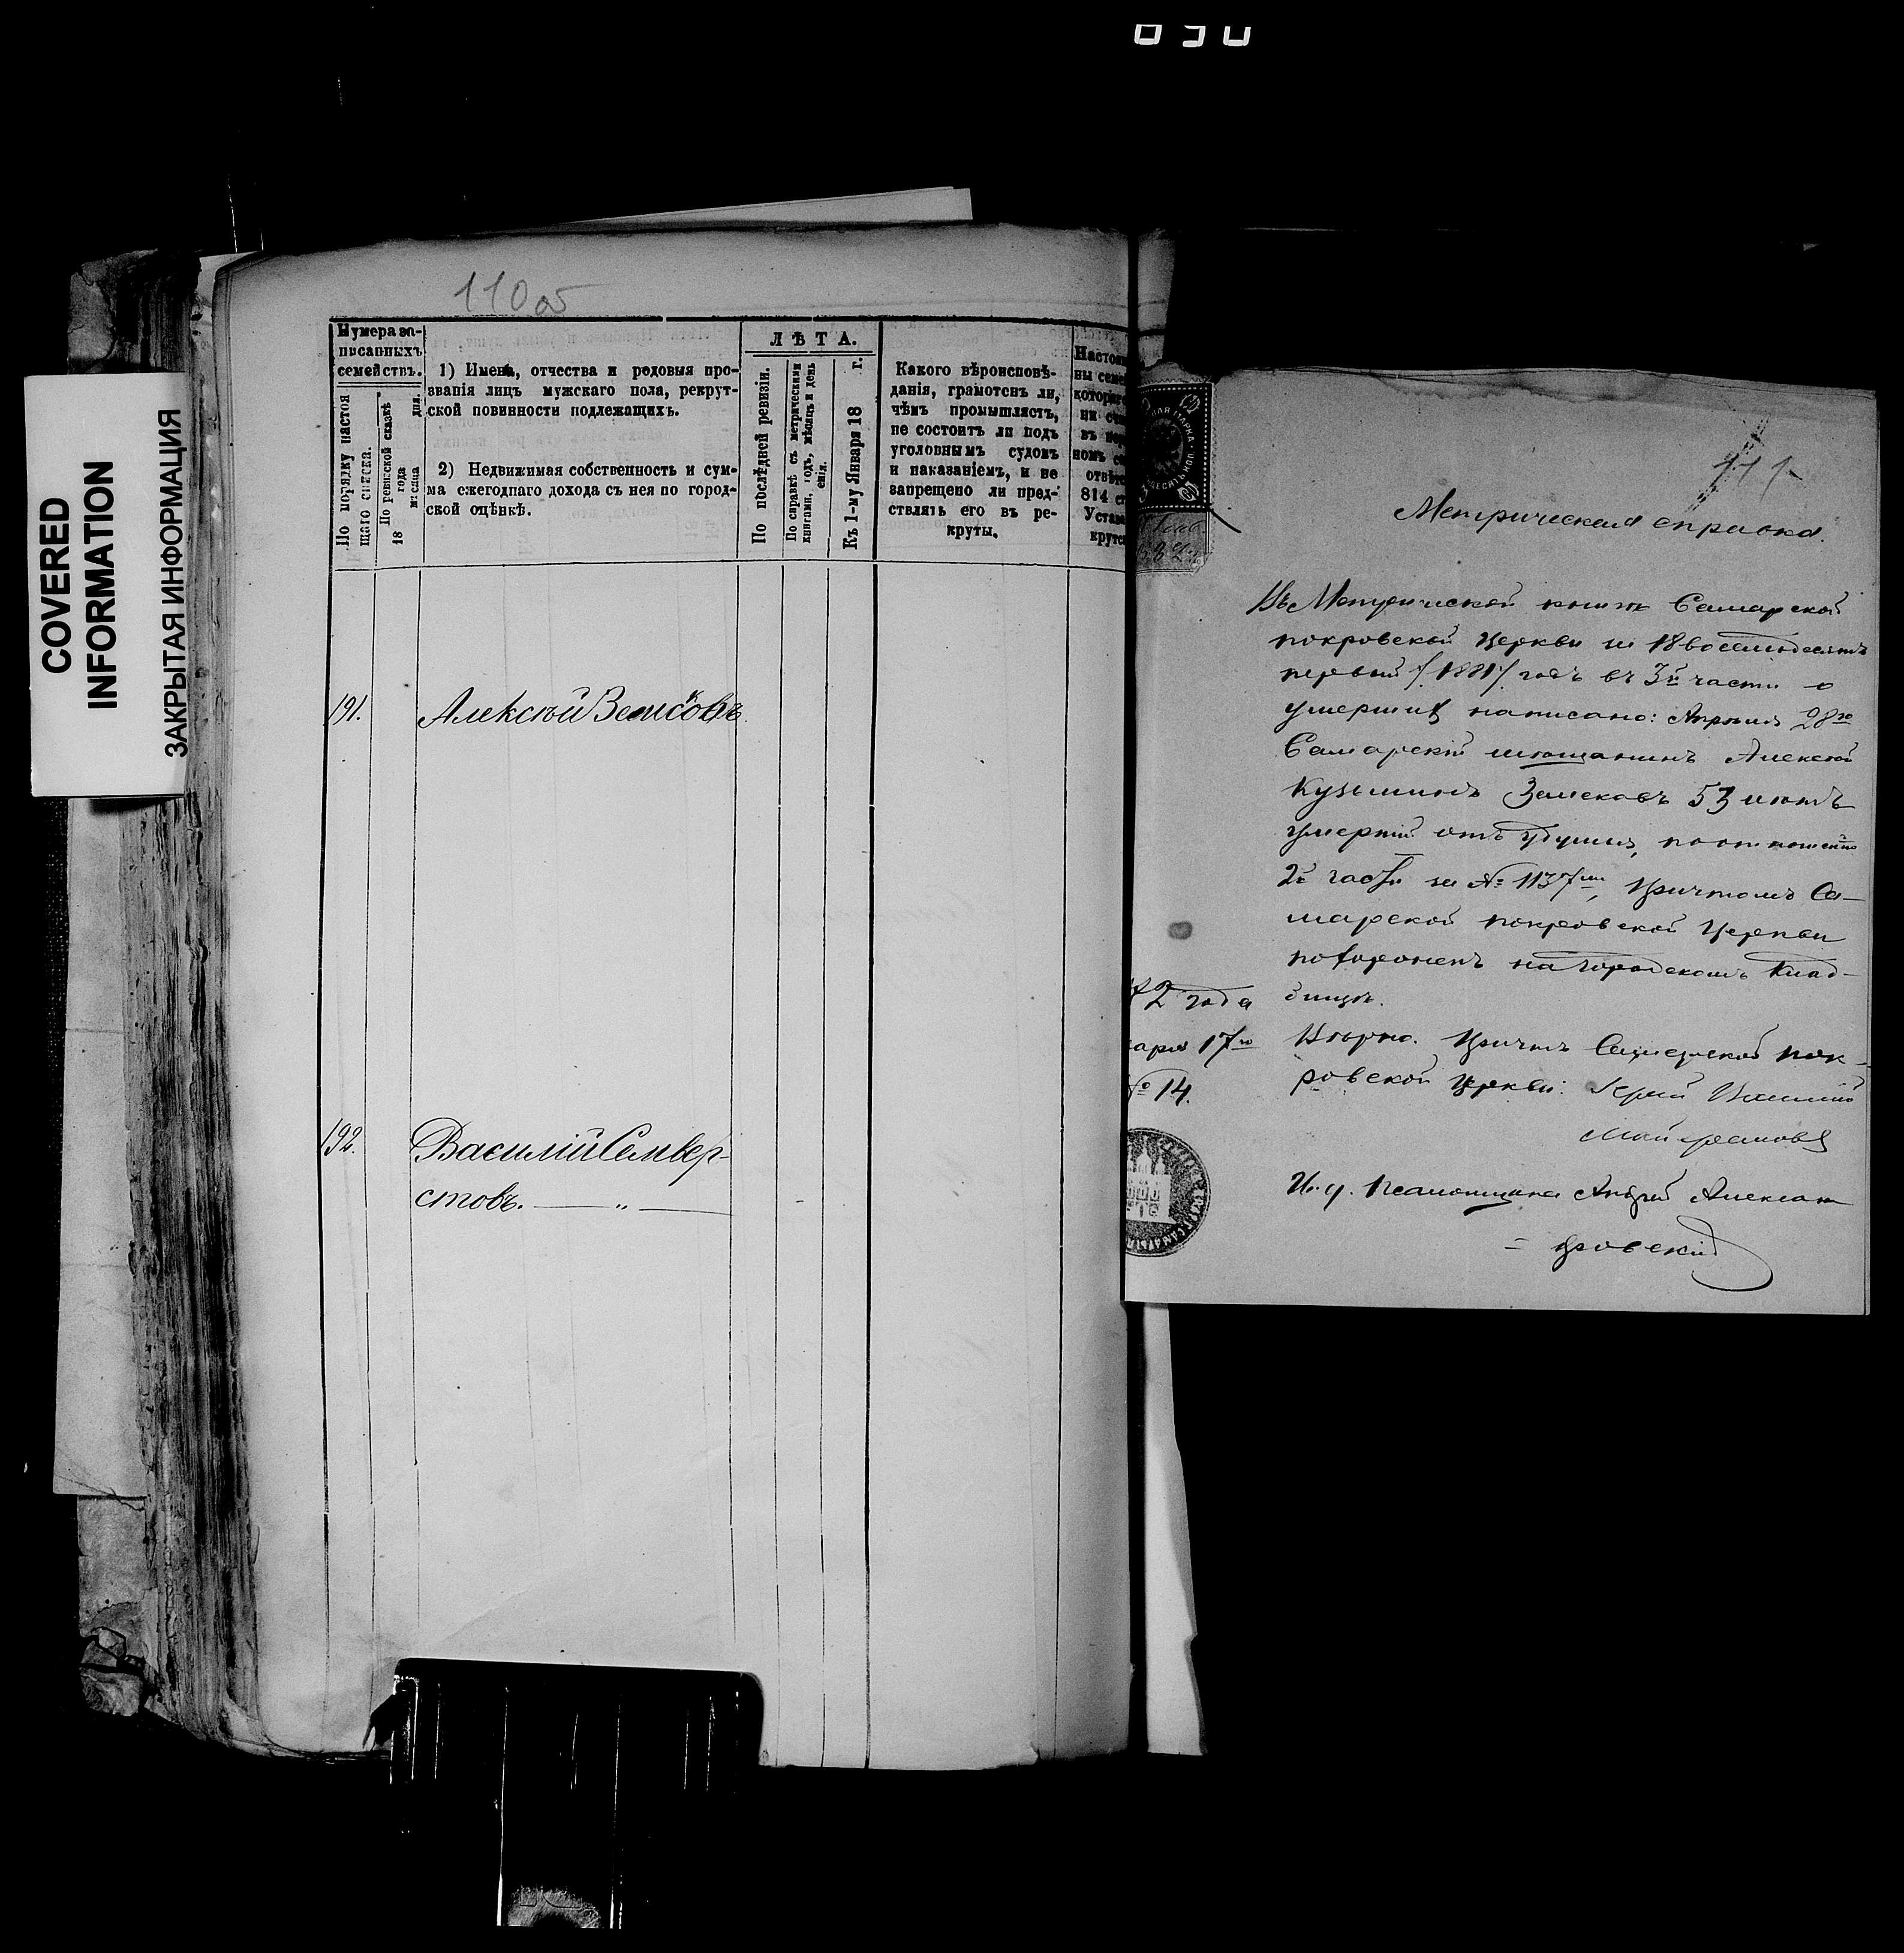 COVERED
INFORMATION
ЗАКРЫТАЯ ИНФОРМАЦИЯ
110об
Нумера за-
писанныхъ
семействъ.
По порядку настоя
щаго списка.
По ревизской сказкѣ
18 года
мѣсяца дня.
1) Имена, отчества и родовыя про-
званія лицъ мужскаго пола, рекрут-
ской повинности подлежащихъ.
2) Недвижимая собственность и сум-
ма ежегоднаго дохода съ нея по город-
ской оцѣнкѣ.
ЛѢТА.
По послѣдней ревизіи.
По справкѣ съ метрическими
книгами, годъ, мѣсяцъ и день
Къ 1-му Января 18 г.
Какого вѣроисповѣ-
данія, грамотенъ ли,
чѣмъ промышляетъ,
не состоитъ ли подъ
уголовнымъ судомъ
и наказаніемъ, и не
запрещено ли пред-
ствлять его въ ре-
круты.
814
191. Алексѣй Земсковъ
192. Василій Селивер-
стовъ. — „ —
111
Метрическая справка.
Въ Метрической книгѣ Самарской
покровской Церкви за 18 восемьдесятъ
первый /1881/ годъ въ 3й части о
умершихъ написано: Апрѣля 28го
Самарскій мѣщанинъ Алексѣй
Кузьминъ Земсковъ 53 лѣтъ
умершій отъ удушья, по отношенію
2й части за № 1137мъ, Причтомъ Са-
марской покровской Церкви
похороненъ на городскомъ клад-
бищѣ.
2 года
17го
№ 14.
Вѣрно. Причтъ Самарской пок-
ровской Церкви: Іерей
И. д. Псаломщика Андрей Алексан
= дровскій